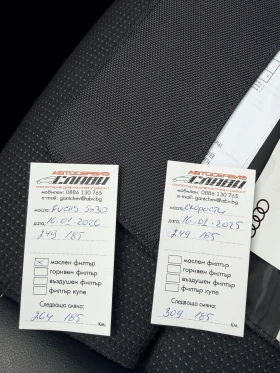 АВТОСЕРВИЗ
СЛАВИ
мобилен: 0886 130 765
e-mail: gantchev@abv.bg
масло: Fuchs 5w30
дата: 16.01.2026
249 185
маслен филтър
горивен филтър
въздушен филтър
филтър купе
Следваща смяна:
264 185 км.
АВТОСЕРВИЗ
СЛАВИ
мобилен: 0886 130 765
e-mail: gantchev@abv.bg
масло: Скорости
дата: 16.01.2025
249 185
маслен филтър
горивен филтър
въздушен филтър
филтър купе
Следваща смяна:
309 185 км.